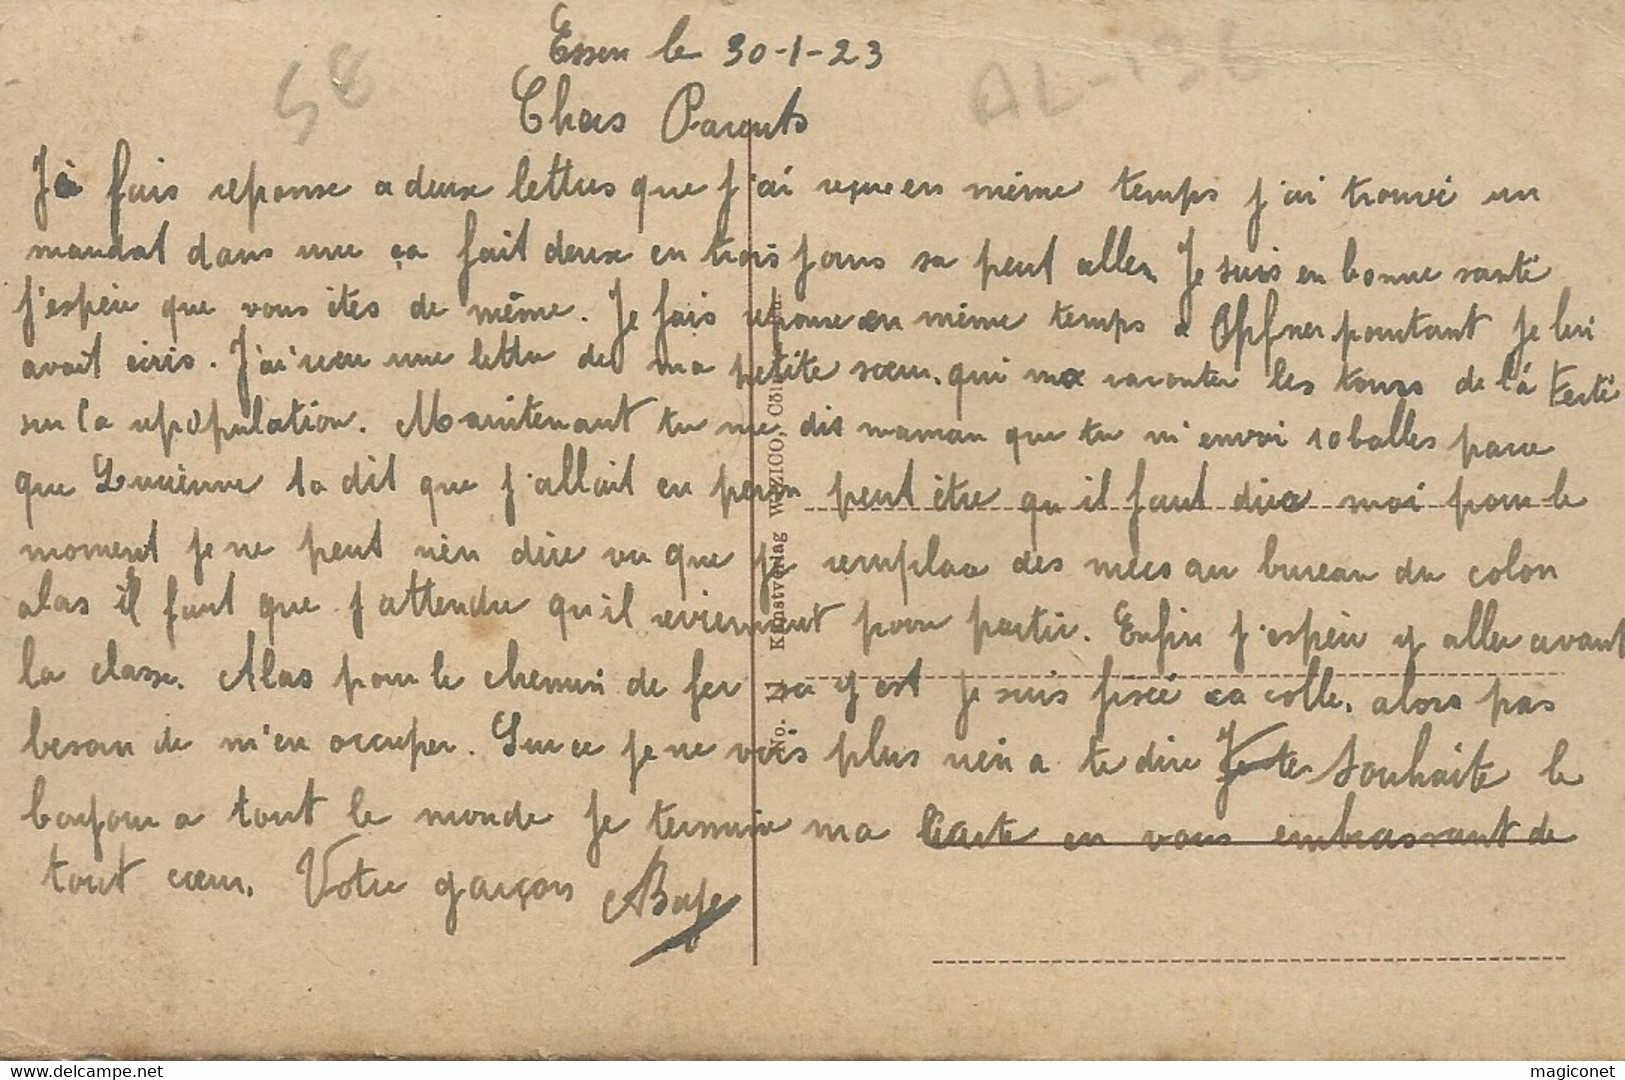 Essen le 30-1-23
Chers Parents
Je fais reponse a deux lettres que j'ai reçu en même temps j'ai trouvé un
mandat dans une ça fait deux en trois jours sa peut aller Je suis en bonne santé
j'espère que vous êtes de même. Je fais reponse en même temps a Opfner pourtant je lui
avait écris. J'ai reçu une lettre de ma petite sœur, qui me raconter les tours de la Ferté
sur la repopulation. Maintenant tu me dis maman que tu m'envoi 10 balles parce
que Lucienne ta dit que j'allait en perm peut être qu'il faut dire moi pour le
moment je ne peut rien dire vu que je remplace des mecs au bureau du colon
alas il faut que j'attendre qu'il reviennent pour partir. Enfin j'espère y aller avant
la classe. Alas pour le chemin de fer sa y est je suis fixé ca colle, alors pas
besoin de m'en occuper. Sur ce je ne vois plus rien a te dire Je te souhaite le
bonjour a tout le monde je termine ma Carte en vous embrassant de
tout cœur. Votre garçon
No. 12 Kunstverlag WEZICO, Cöln
58
AL-136
https://www.delcampe.net
magiconet